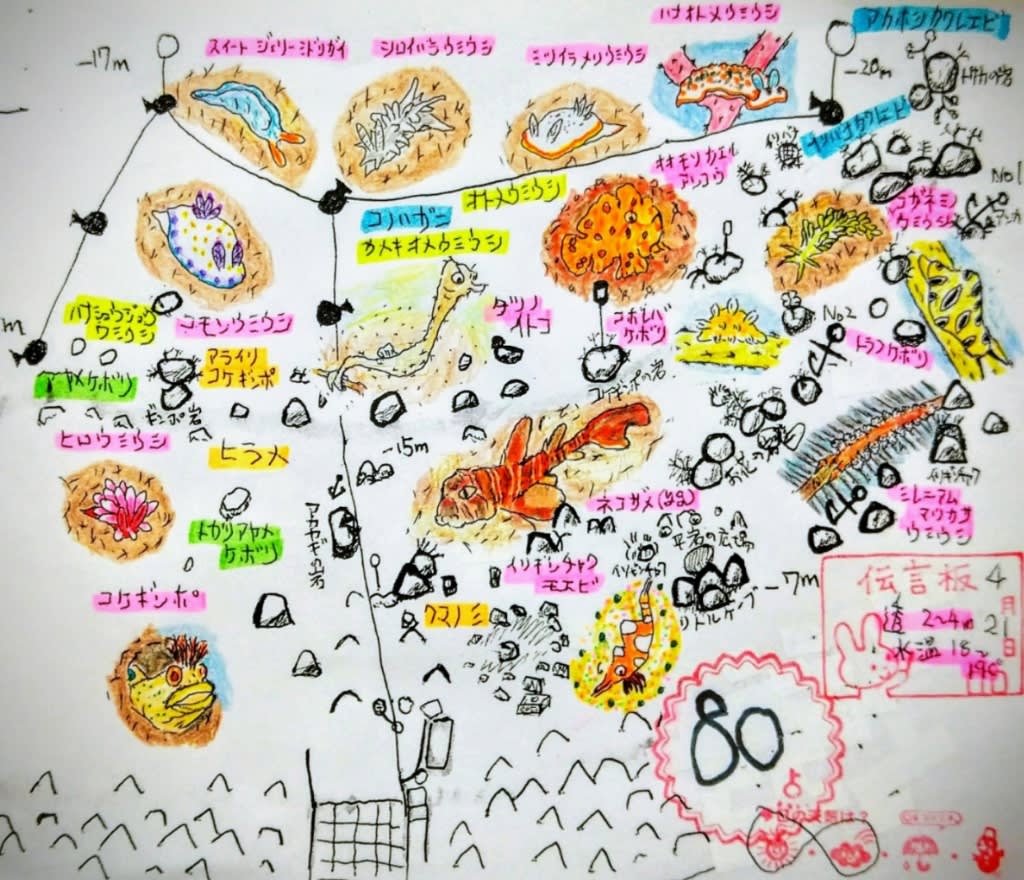 ハナオトメウミウシ
アカホシカクレエビ
スイートジェリーミドリガイ
シロイバラウミウシ
ミツイラメリウミウシ
-17m
-20m
トサカの岩
イソバナカクレエビ
オトメウミウシ
オオモンカエル
アンコウ
イソバナ
コガネミノ
ウミウシ
No1
アンカ
コノハガニ
カメキオトメウミウシ
ハナショウジョウ
ウミウシ
コモンウミウシ
タツノ
イトコ
コボレバ
ケボリ
No2
トラフケボリ
m
アヤメケボリ
アライソ
コケギンポ
ギンポ岩
コケギンポの岩
ヒロウミウシ
ヒラメ
-15m
トガリアヤメ
ケボリ
アカヤギの岩
ネコザメ(幼魚)
イソギンチャク
ミレニアム
マツカサ
ウミウシ
平岩の広場
イソギンチャク
モエビ
イソギンチャク
-7m
リトルケーブ
コケギンポ
クマノミ
伝言板
4月21日
透 2~4m
水温 18~
19℃
80
点
今日の天気は?